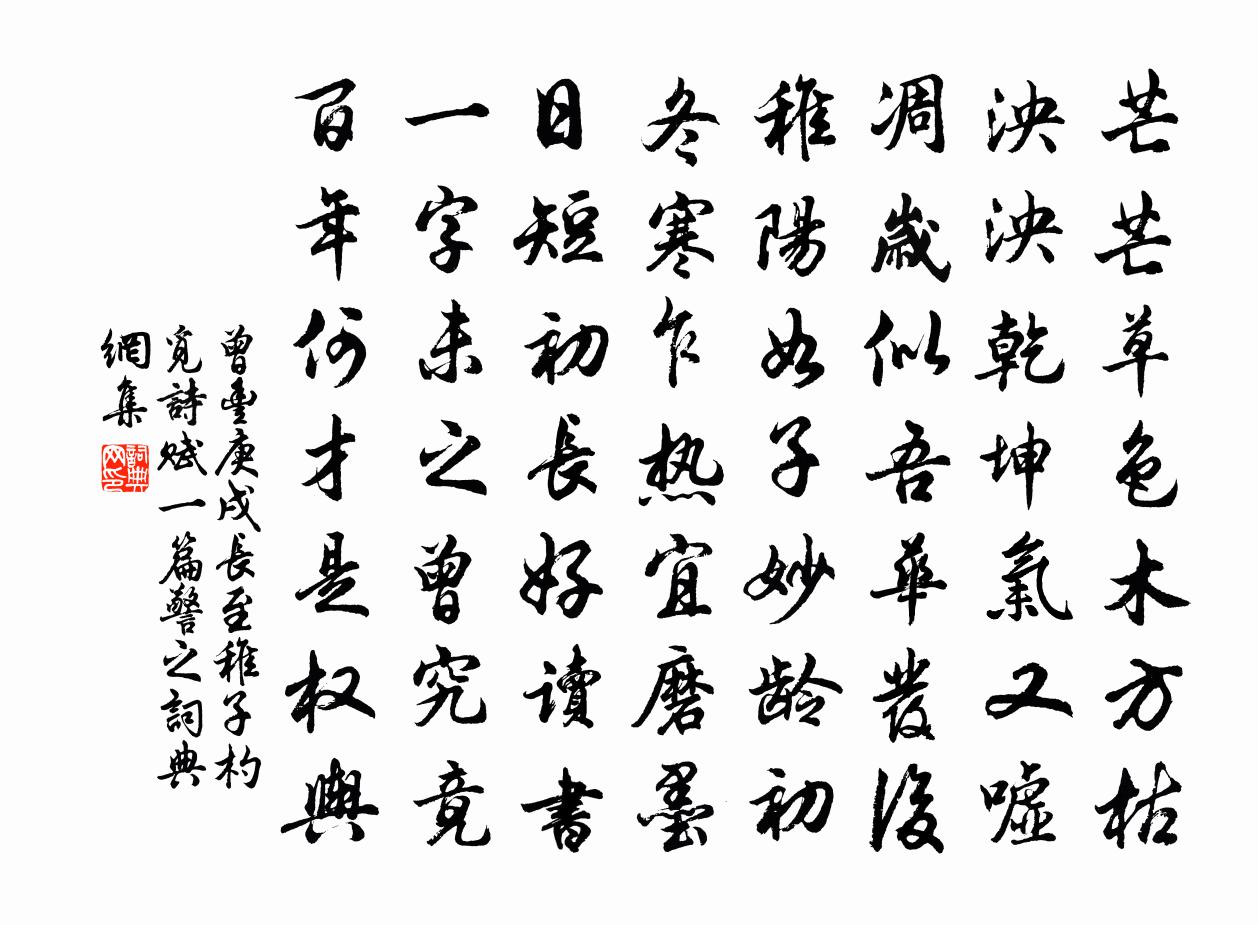 芒芒草色木方枯
泱泱乾坤氣又噓
凋歲似吾華發後
稚陽如子妙龄初
冬寒乍热宜磨墨
日短初長好讀書
一字未之曾究竟
百年何才是权輿
曾豐庚戌長至稚子杓
覓詩賦一篇警之詞典
網集
詞典网印